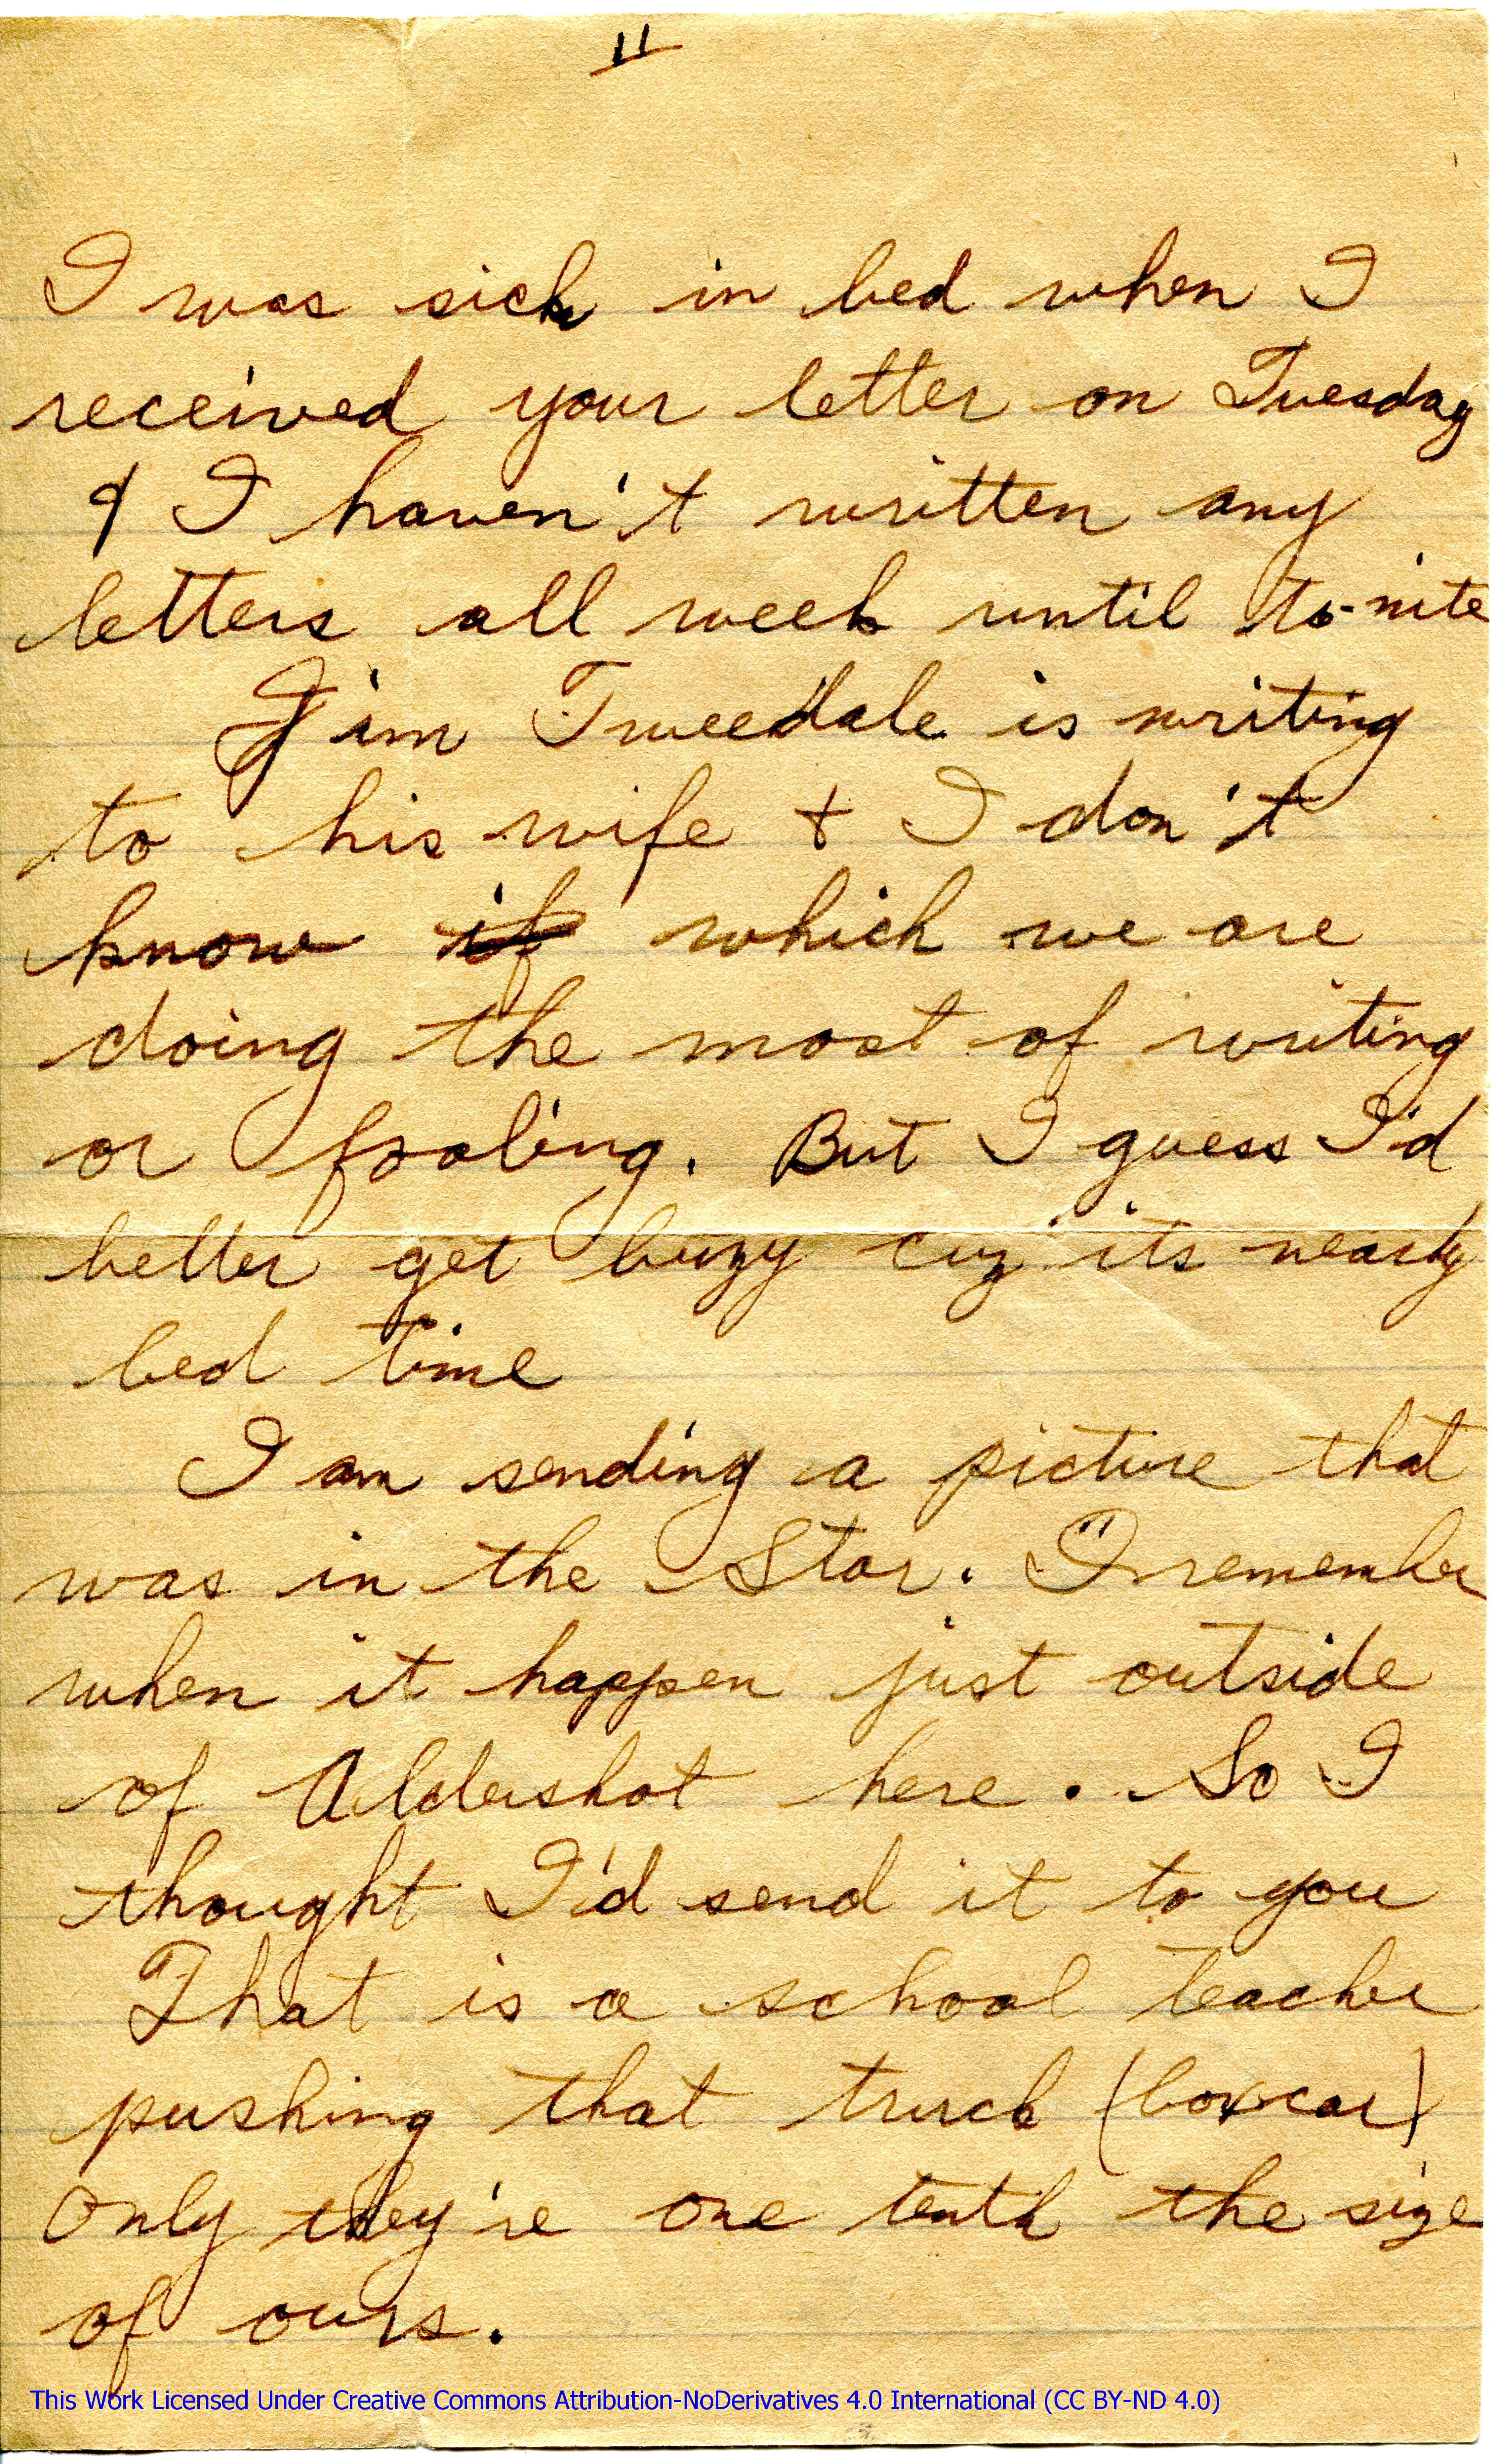 11
I was sick in bed when I
received your letter on Tuesday
& I haven't written any
letters all week until to-nite
Jim Tweedale is writing
to his wife + I don't
know if which we are
doing the most of writing
or fooling. But I guess I'd
better get buzy cuz its nearly
bed time
I am sending a picture that
was in the Star. I remember
when it happen just outside
of Aldershot here. So I
thought I'd send it to you
That is a school teacher
pushing that truck (boxcar)
only they're one tenth the size
of ours.
This Work Licensed Under Creative Commons Attribution-NoDerivatives 4.0 International (CC BY-ND 4.0)